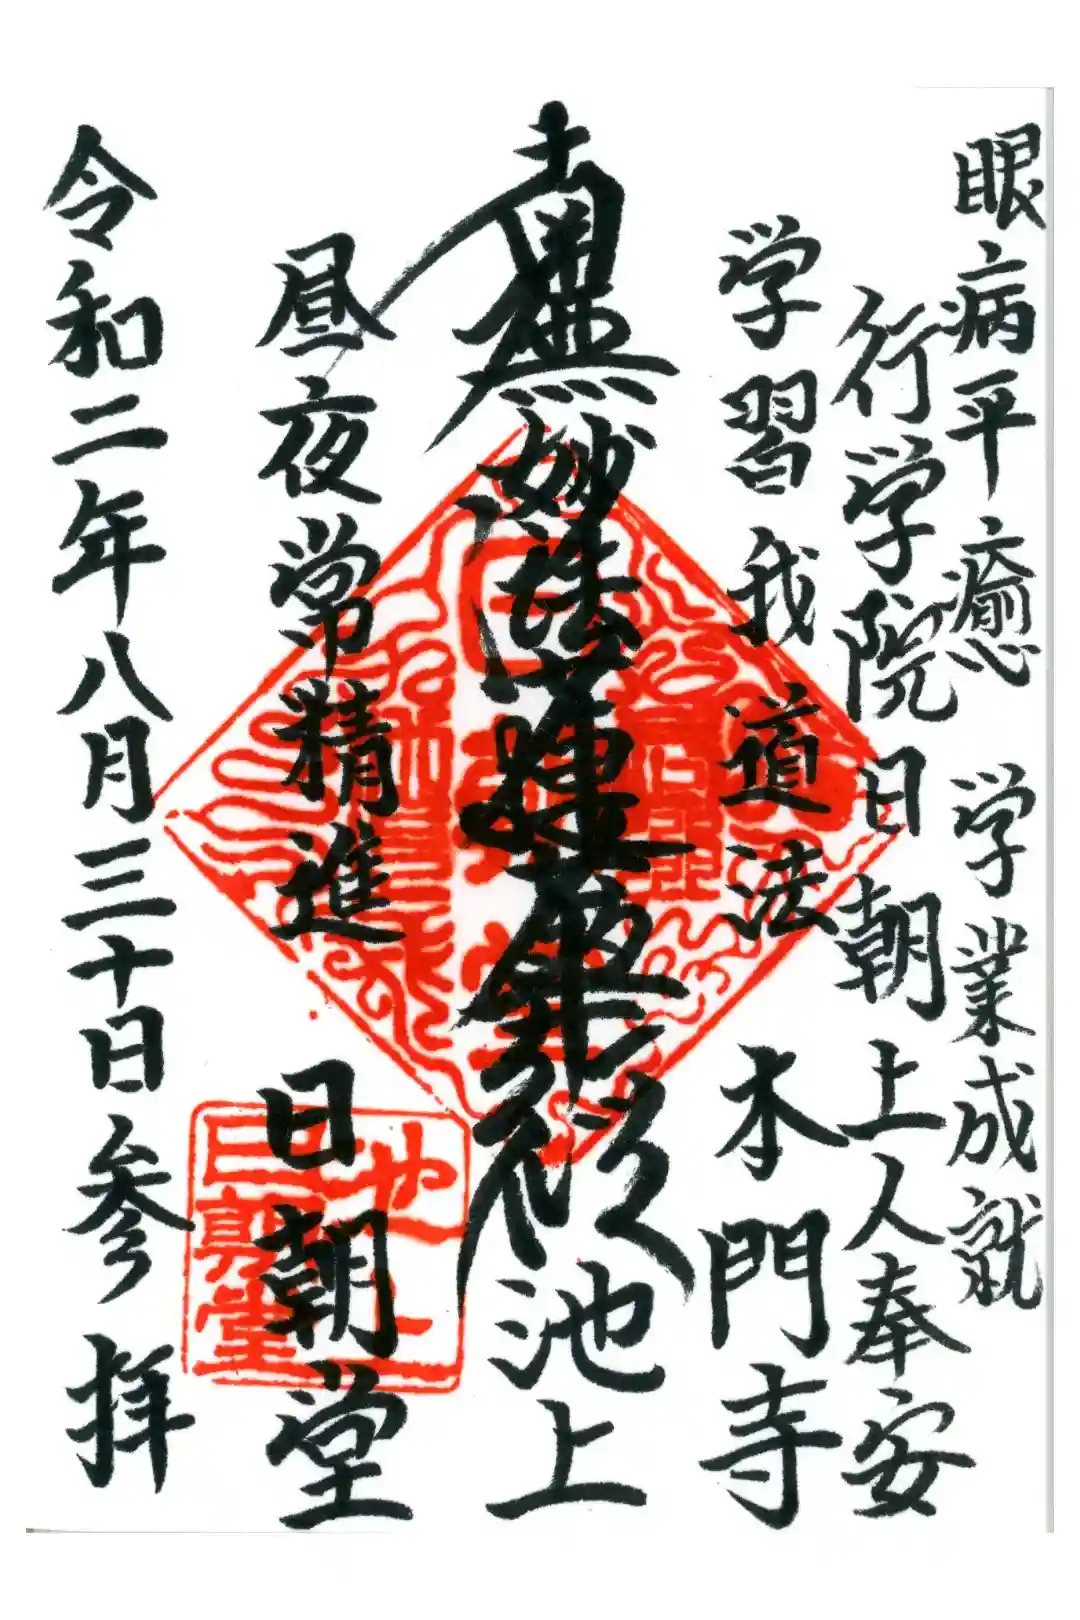 眼病平癒 学業成就
行学院日朝上人奉安
学習我道法 本門寺
南無妙法蓮華経 池上
昼夜常精進 日朝堂
令和二年八月三十日参拝
池上
日朝堂